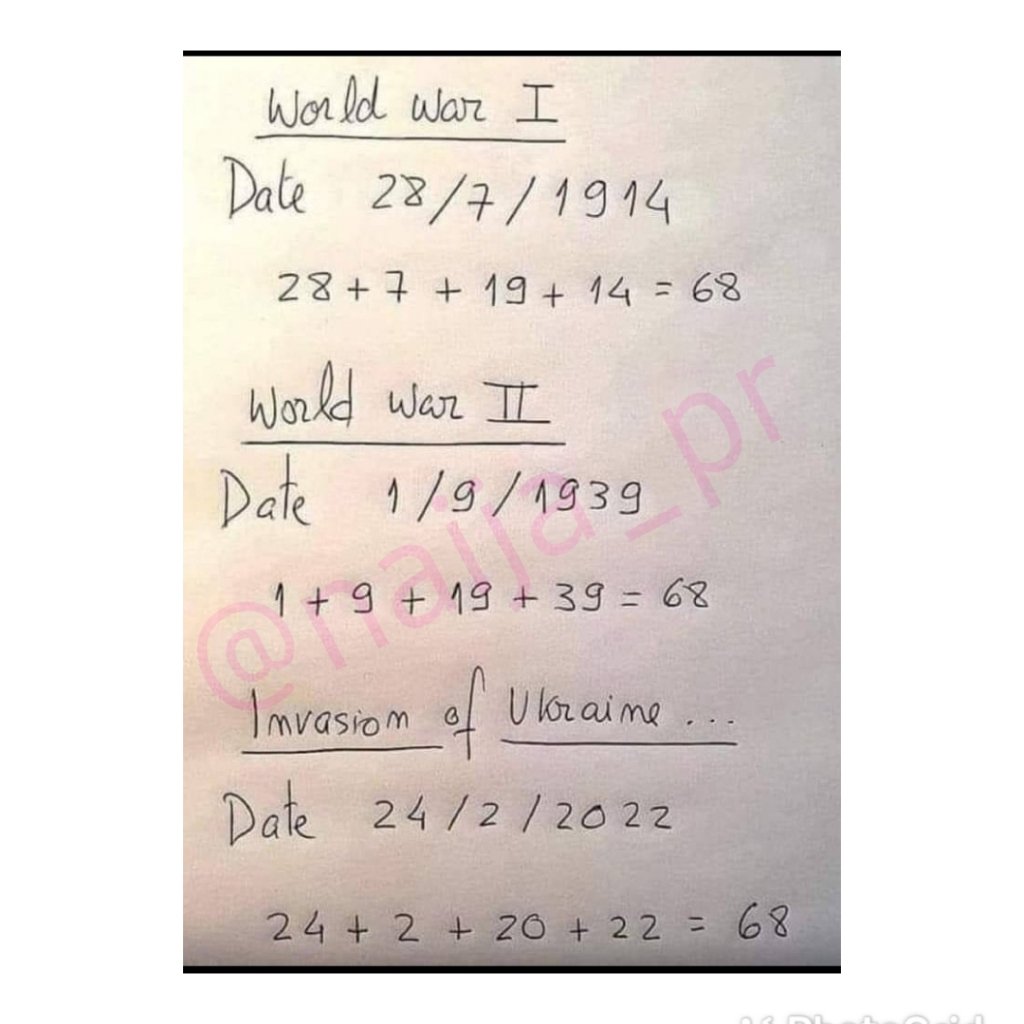 World War I
Date 28/7/1914
28 + 7 + 19 + 14 = 68
World War II
Date 1/9/1939
1 + 9 + 19 + 39 = 68
Invasion of Ukraine ...
Date 24/2/2022
24 + 2 + 20 + 22 = 68
@naija_pr